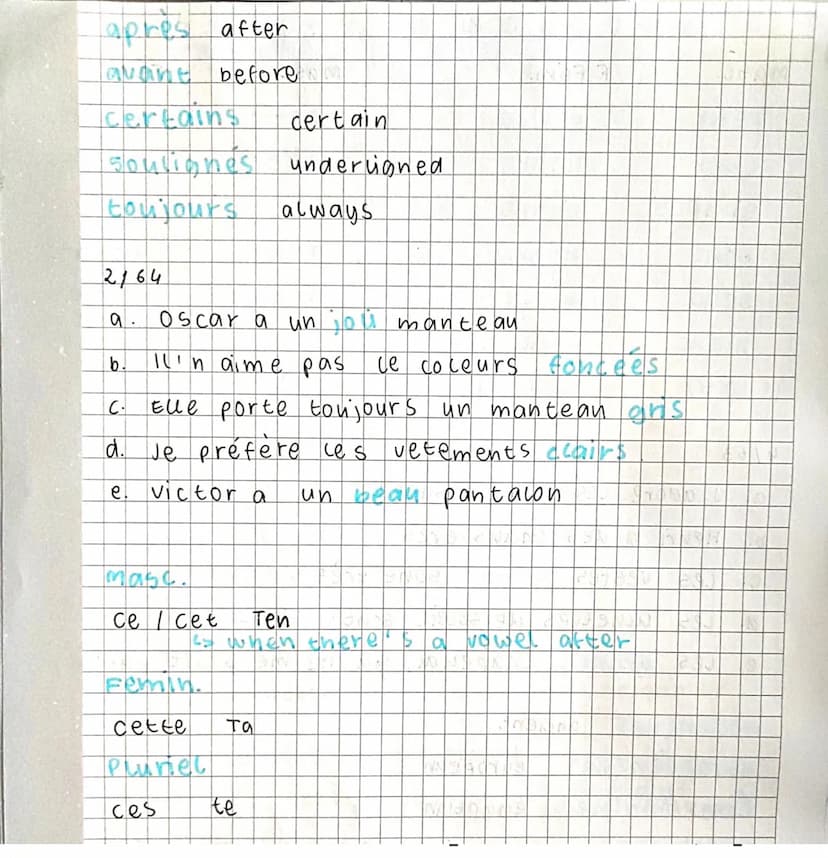 après after
avant before
certains certain
soulignés underligned
toujours always
2/64
a. Oscar a un joli manteau
b. Il'n aime pas le coleurs foncéés
c. Elle porte toujours un manteau gris
d. Je préfère les vetements clairs
e. Victor a un beau pantalon
masc.
ce / cet Ten
↳ when there's a vowel after
Femin.
cette Ta
Pluriel
ces te